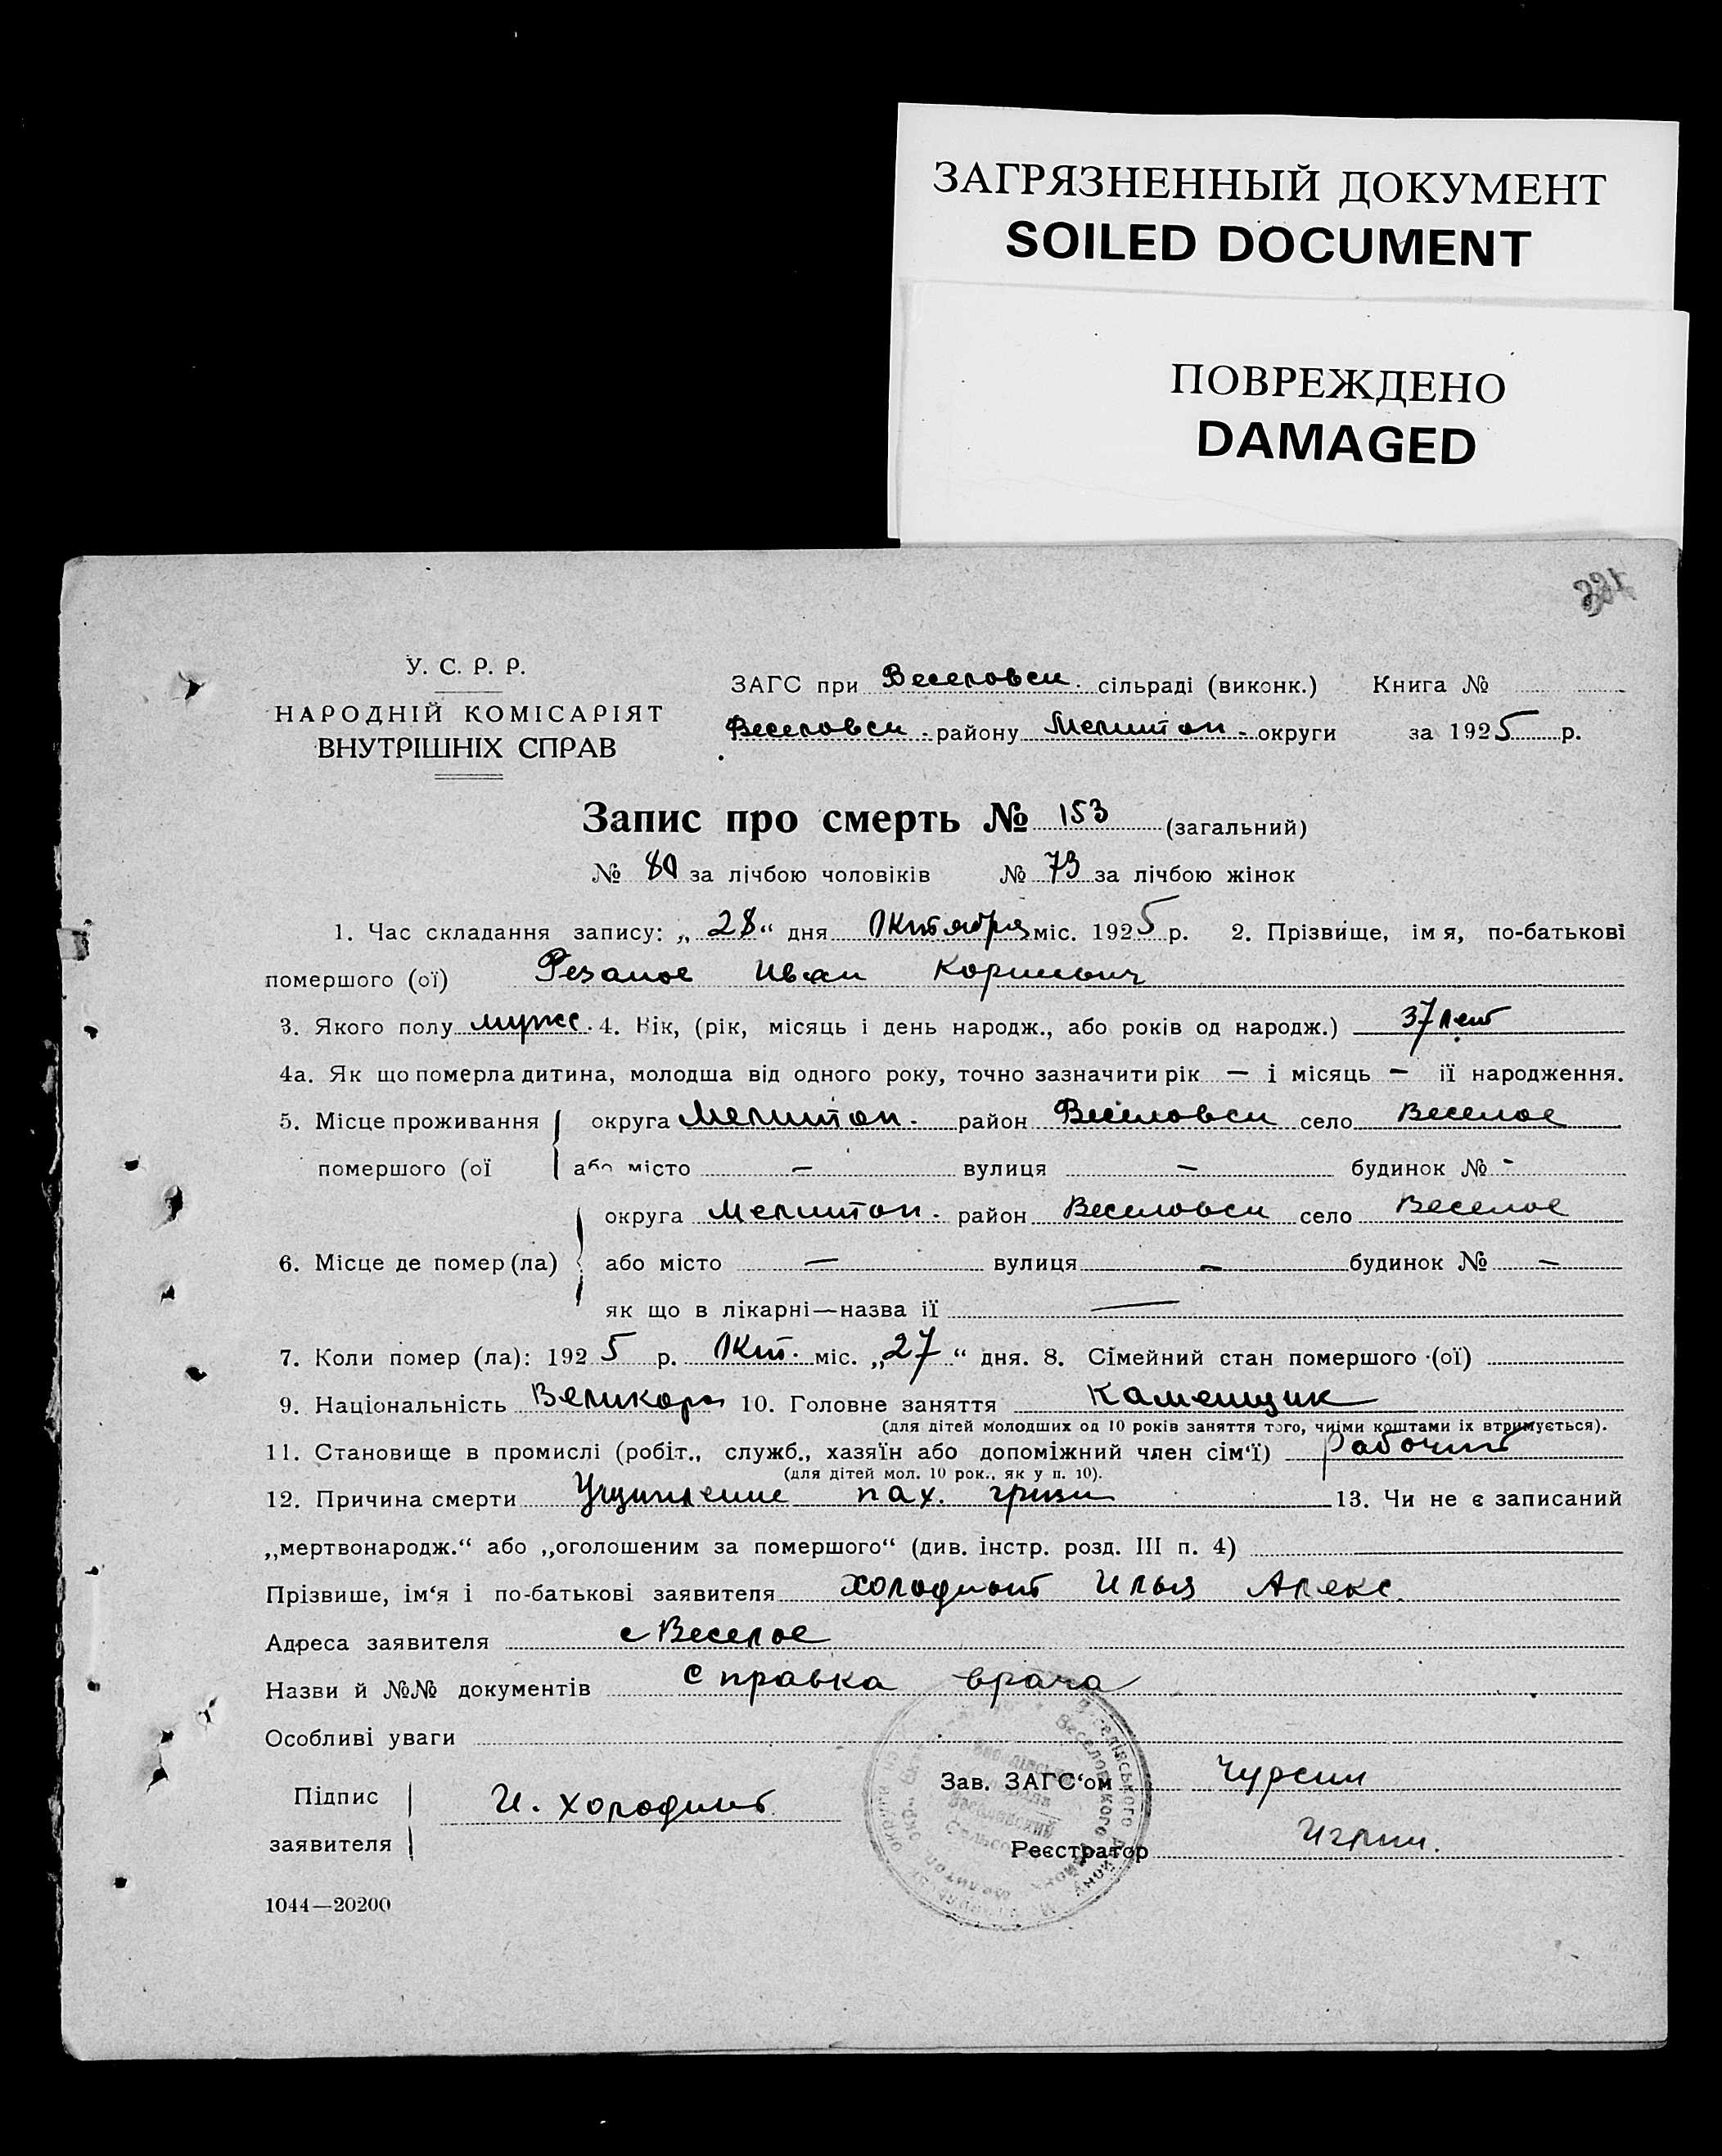 ЗАГРЯЗНЕННЫЙ ДОКУМЕНТ
SOILED DOCUMENT
ПОВРЕЖДЕНО
DAMAGED
У. С. Р. Р.
НАРОДНІЙ КОМІСАРІЯТ
ВНУТРІШНІХ СПРАВ
ЗАГС при Веселовск. сільраді (виконк.) Книга №
Веселовск. району Мелитоп. округи за 1925 р.
Запис про смерть № 153 (загальний)
№ 80 за лічбою чоловіків № 73 за лічбою жінок
1. Час складання запису: „28“ дня Октября міс. 1925 р. 2. Прізвище, імя, по-батькові
помершого (ої) Резанов Иван
3. Якого полу мужс. 4. Вік, (рік, місяць і день народж., або років од народж.) 37 лет
4а. Як що померла дитина, молодша від одного року, точно зазначити рік — і місяць — її народження.
5. Місце проживання округа Мелитоп. район Веселовск село Веселое
помершого (ої або місто — вулиця — будинок № -
округа Мелитоп. район Веселовск село Веселое
6. Місце де помер (ла) або місто — вулиця — будинок № —
як що в лікарні—назва її —
7. Коли помер (ла): 1925 р. Окт. міс. „27“ дня. 8. Сімейний стан помершого (ої)
9. Національність Великор 10. Головне заняття Каменщик
(для дітей молодших од 10 років заняття того, чиїми коштами їх втримується).
11. Становище в промислі (робіт., служб., хазяїн або допоміжний член сім‘ї) Рабочий
(для дітей мол. 10 рок., як у п. 10).
12. Причина смерти Ущипление пах. грыжи 13. Чи не є записаний
„мертвонародж.“ або „оголошеним за помершого“ (див. інстр. розд. III п. 4)
Прізвише, ім‘я і по-батькові заявителя Холодный Илья Алекс.
Адреса заявителя с Веселое
Назви й №№ документів справка врача
Особливі уваги
Підпис
заявителя И. Холодный
Зав. ЗАГС‘ом Чурсин
Реєстратор
1044—20200